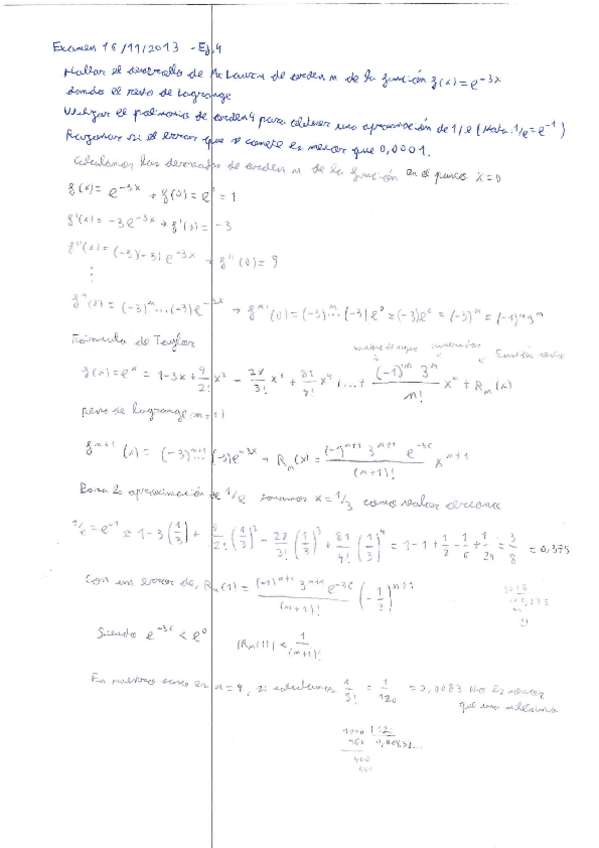 Examen 16/11/2013 - Ej.4
Hallar el desarrollo de Mc Laurin de orden n de la función f(x) = e^{-3x}
dando el resto de Lagrange
Utilizar el polinomio de orden 4 para obtener una aproximación de 1/e (Nota: 1/e = e^{-1})
Razonar si el error que se comete es menor que 0,0001.
Calculamos las derivadas de orden n de la función en el punto x=0
f(x) = e^{-3x} → f(0) = e^0 = 1
f'(x) = -3e^{-3x} → f'(0) = -3
f''(x) = (-3)(-3)e^{-3x} → f''(0) = 9
⋮
f^n(x) = (-3)^n...(-3)e^{-3x} → f^n(0) = (-3)^n...(-3)e^0 = (-3)e^0 = (-3)^n = (-1)^n 3^n
Fórmula de Taylor
f(x) = e^x = 1 - 3x + 9/2! x^2 - 27/3! x^3 + 81/4! x^4 , ... + (-1)^n 3^n / n! x^n + R_n(x)
resto de lagrange (n+1)
f^{n+1}(x) = (-3)^{n+1}...(-3)e^{-3x} → R_n(x) = (-1)^{n+1} 3^{n+1} e^{-3c} / (n+1)! x^{n+1}
Para la aproximación de 1/e tomamos x = 1/3 como valor
1/e = e^{-1} ≈ 1 - 3(1/3) + 9/2! (1/3)^2 - 27/3! (1/3)^3 + 81/4! (1/3)^4 = 1 - 1 + 1/2 - 1/6 + 1/24 = 3/8 = 0,375
Con un error de, R_n(1) = (-1)^{n+1} 3^{n+1} e^{-3c} / (n+1)! (-1/3)^{n+1}
Siendo e^{-3c} < e^0 |R_n(1)| < 1/(n+1)!
En nuestro caso es n=4, si calculamos 1/5! = 1/120 = 0,0083 No es menor
que